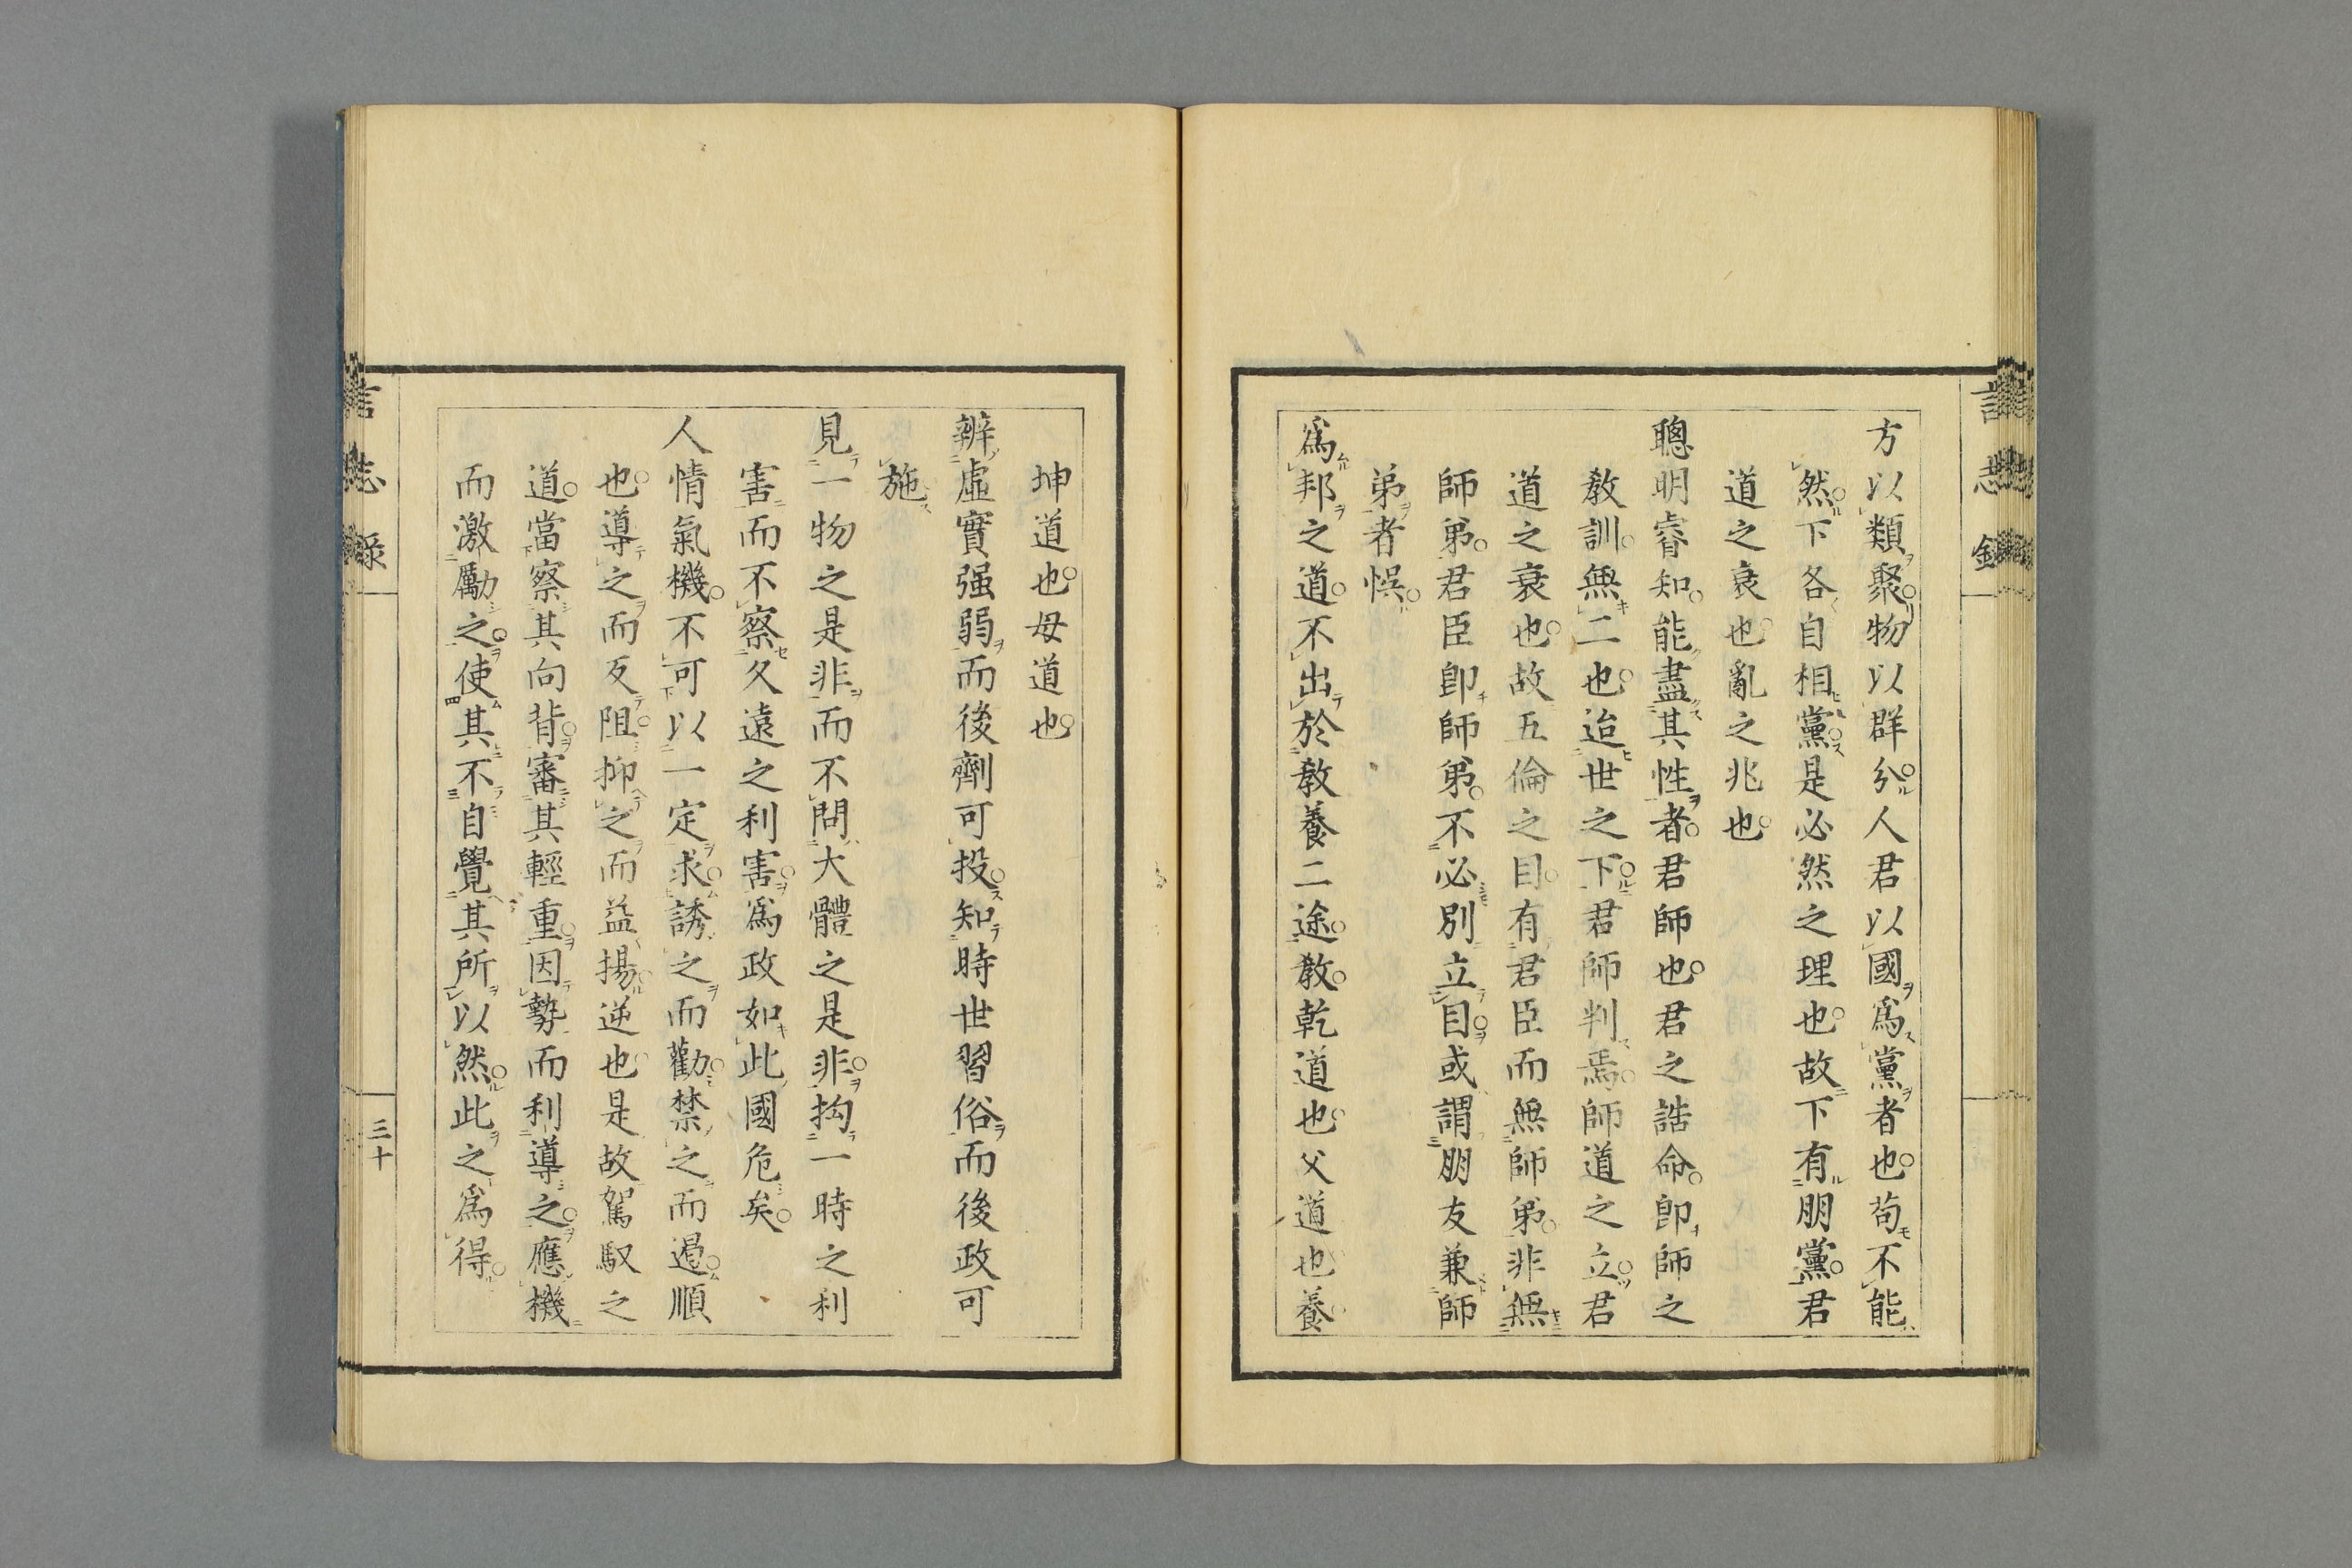 言志錄
方以類聚物以群分人君以國爲黨者也苟不能
然下各自相黨是必然之理也故下有朋黨君
道之衰也亂之兆也
聰明睿知能盡其性者君師也君之誥命卽師之
教訓無二也迨世之下君師判焉師道之立君
道之衰也故五倫之目有君臣而無師弟非無
師弟君臣卽師弟不必別立目或謂朋友兼師
弟者悞
爲邦之道不出於教養二途教乾道也父道也養
坤道也母道也
辨虛實强弱而後劑可投知時世習俗而後政可
施
見一物之是非而不問大體之是非拘一時之利
害而不察久遠之利害爲政如此國危矣
人情氣機不可以一定求誘之而勸禁之而遏順
也導之而反阻抑之而益揚逆也是故駕馭之
道當察其向背審其輕重因勢而利導之應機
而激勵之使其不自覺其所以然此之爲得
言志錄
三十